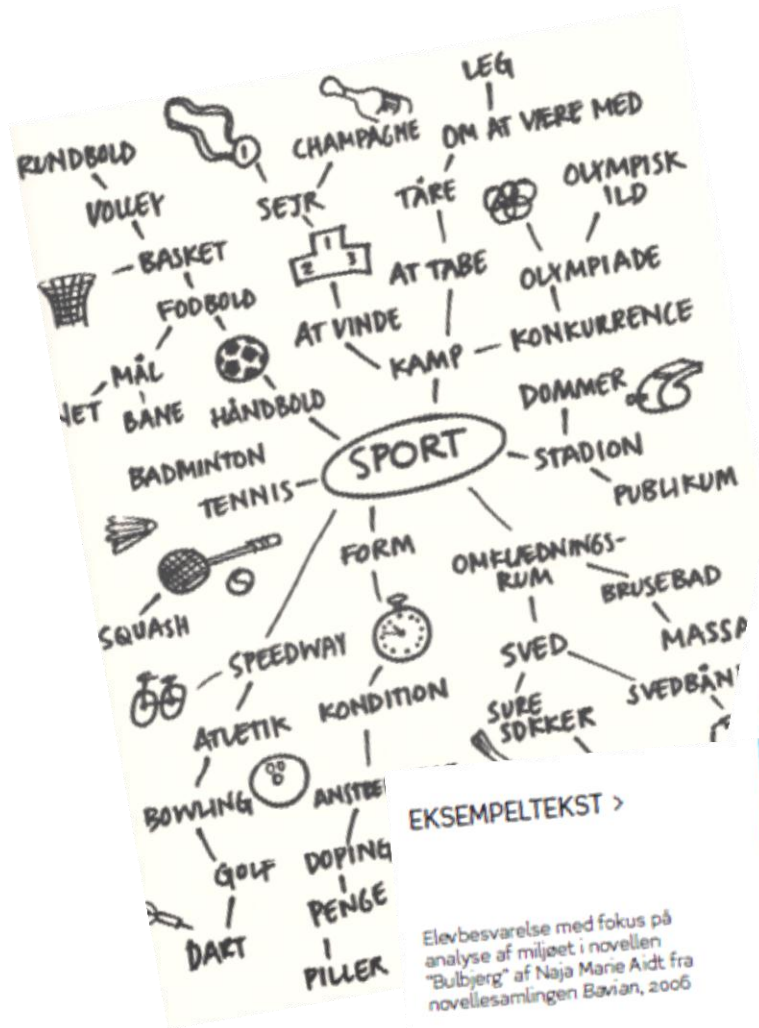 LEG
OM AT VÆRE MED
CHAMPAGNE
1
RUNDBOLD
VOLLEY
SEJR
TÅRE
OLYMPISK
ILD
BASKET
1
2 3
AT TABE
OLYMPIADE
FODBOLD
AT VINDE
KAMP
KONKURRENCE
MÅL
NET
BANE
HÅNDBOLD
DOMMER
SPORT
STADION
PUBLIKUM
BADMINTON
TENNIS
FORM
OMKLÆDNINGS-
RUM
BRUSEBAD
SQUASH
SPEEDWAY
SVED
MASSA
SVEDBÅN
KONDITION
SURE
SOKKER
ATLETIK
BOWLING
GOLF
DOPING
PENGE
DART
PILLER
EKSEMPELTEKST >
Elevbesvarelse med fokus på
analyse af miljøet i novellen
"Bulbjerg" af Naja Marie Aidt fra
novellesamlingen Bavian, 2006